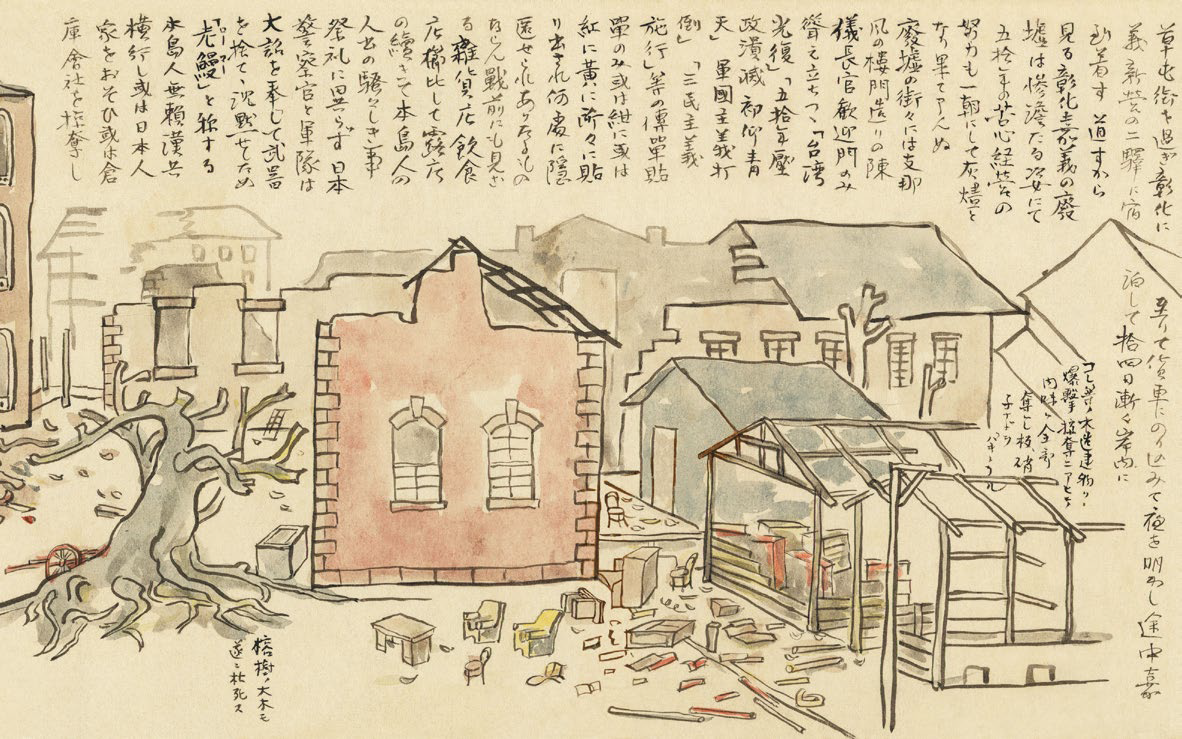 草屯街を過ぎ彰化に 至りて貨車にのり込みて夜を明かし 途中嘉
義 新営の二驛に宿 泊して拾四日漸く岸内に
到着す 道すから
見る彰化嘉義の廢
墟は惨澹たる姿にて
五拾年の苦心経営の
努力も一朝にして灰燼と
なり果てんぬ
廢墟の街々には支那
風の樓門造りの陳
儀長官歓迎門のみ
聳え立ちつゝ「台湾
光復」「五拾年壓
政潰滅 初仰青
天」「軍國主義打
倒」「三民主義
施行」等の傳單貼
單のみ或は紺に或は
紅に黄に所々に貼
り出され何處に隠
匿せられありたるもの
ならん戰前にも見ざ
る雜貨店飲食
店櫛比して露店
の續きて本島人の
人出の騒々しき事
祭礼に異らず 日本
警察官と軍隊は
大詔を奉じて武器
を捨て、沈黙せしため
「老鰻」と称する
本島人無頼漢共
横行し或は日本人
家をおそひ或は倉
庫會社を掠奪し
大建造物ハ
爆撃 掠奪ニアヒ
内部ハ全部
板硝
子ナドヲ
榕樹ノ大木モ
遂ニ枯死ス